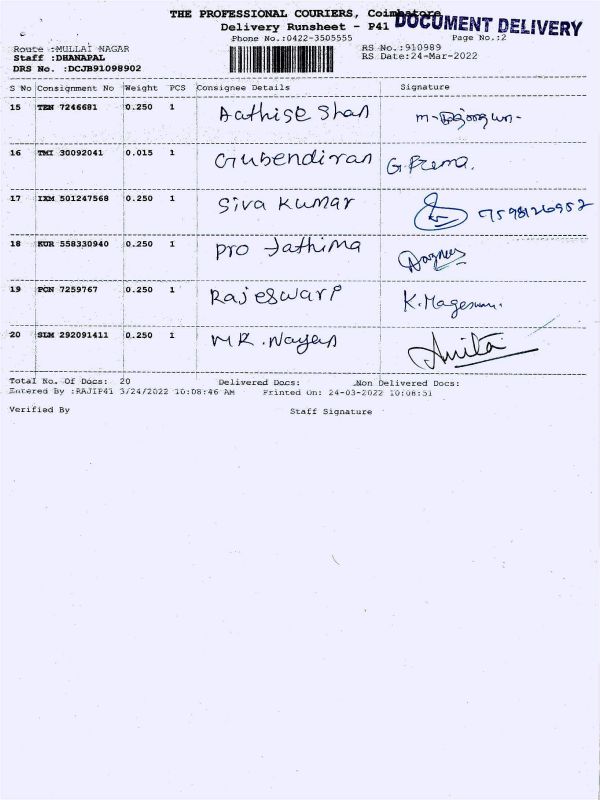 THE PROFESSIONAL COURIERS, Coimbatore
DOCUMENT DELIVERY
Delivery Runsheet - P41
Phone No.:0422-3505555 Page No.:2
Route :MULLAI NAGAR RS No.:910989
Staff :DHANAPAL RS Date:24-Mar-2022
DRS No. :DCJB91098902
S No Consignment No Weight PCS Consignee Details Signature
15 TEN 7246681 0.250 1 Aathise Shan
16 TMI 30092041 0.015 1 Gubendiran G. Prema.
17 IXM 501247568 0.250 1 Siva Kumar 7598126952
18 KUR 558330940 0.250 1 pro fathima
19 PON 7259767 0.250 1 Rajeswari K. Mageswari.
20 SLM 292091411 0.250 1 MR. Nayan Anita
Total No. Of Docs: 20 Delivered Docs: Non Delivered Docs:
Entered By :RAJIP41 3/24/2022 10:08:46 AM Printed On: 24-03-2022 10:08:51
Verified By Staff Signature